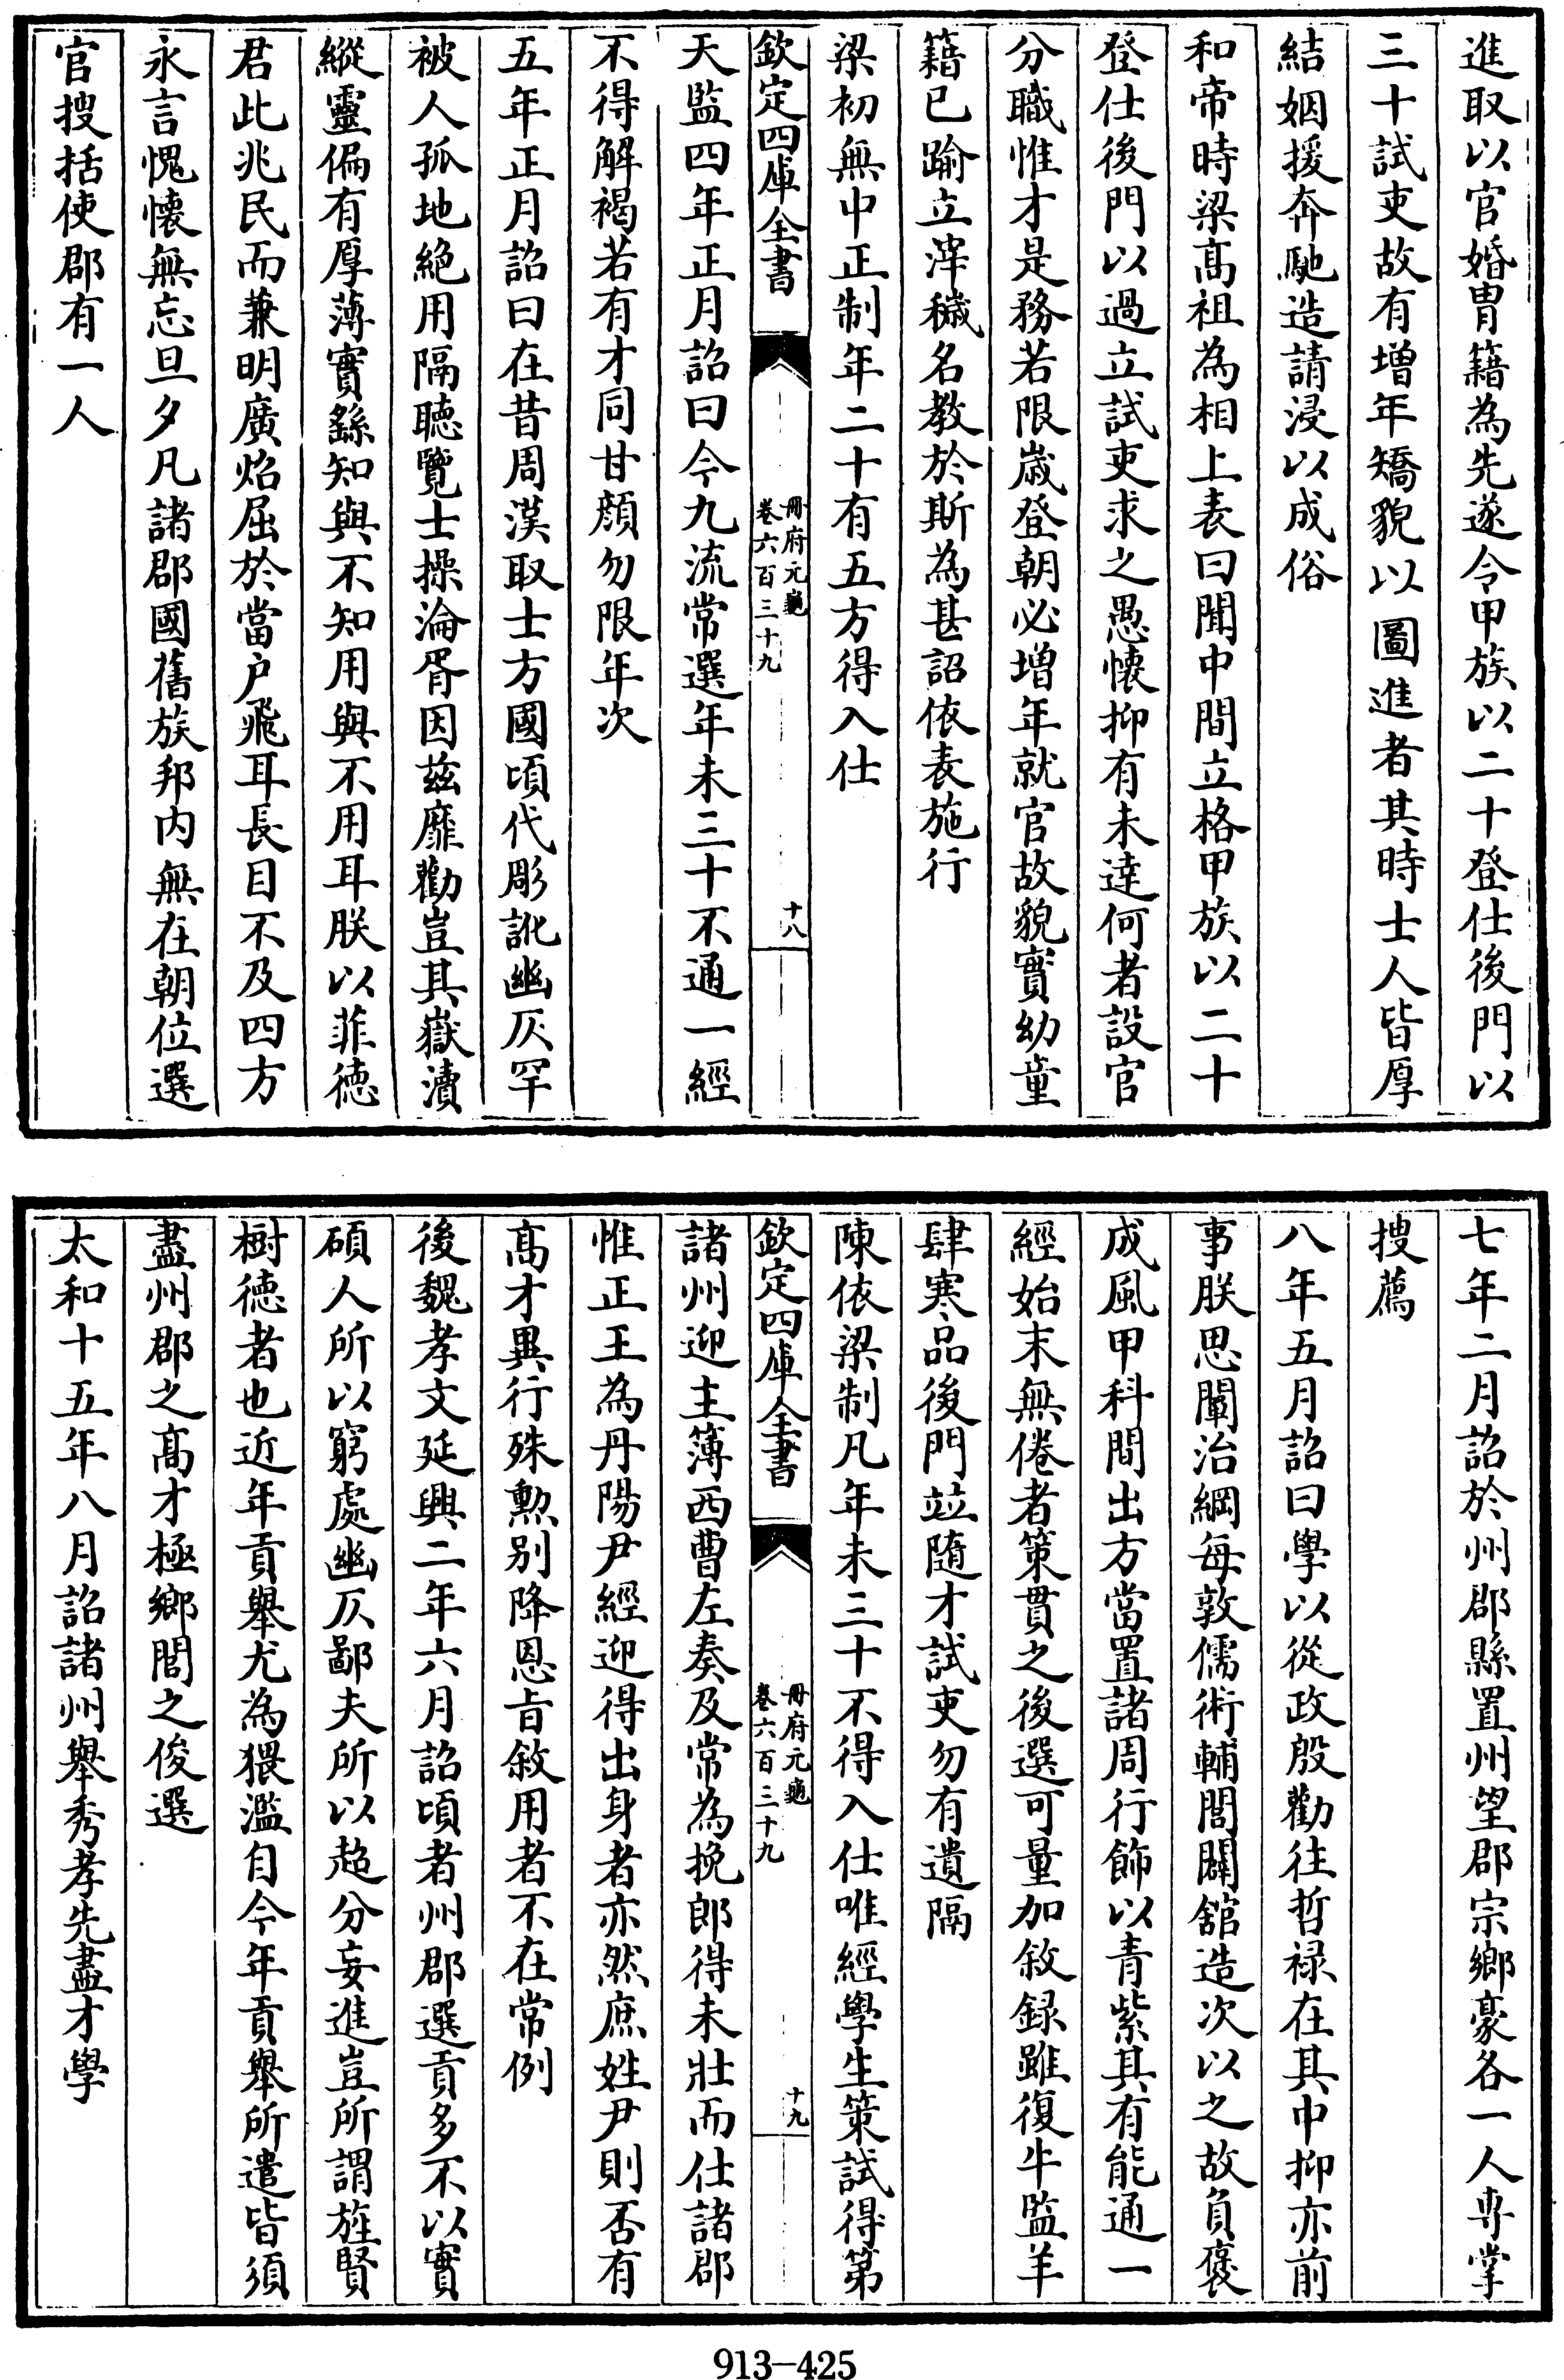 進取以官婚冑籍為先遂令甲族以二十登仕後門以
三十試吏故有増年矯貌以圖進者其時士人皆厚
結姻援奔馳造請浸以成俗
和帝時梁髙祖為相上表曰聞中間立格甲族以二十
登仕後門以過立試吏求之愚懐抑有未達何者設官
分職惟才是務若限嵗登朝必増年就官故貌實幼童
籍已踰立滓穢名教於斯為甚詔依表施行
梁初無中正制年二十有五方得入仕
欽定四庫全書
冊府元龜
卷六百三十九
十八
天監四年正月詔曰今九流常選年未三十不通一經
不得解褐若有才同甘顔勿限年次
五年正月詔曰在昔周漢取士方國頃代彫訛幽仄罕
被人孤地絶用隔聴覽士操淪胥因茲靡勸豈其嶽瀆
縱靈偏有厚薄實繇知與不知用與不用耳朕以菲徳
君此兆民而兼明廣炤屈於當户飛耳長目不及四方
永言愧懐無忘旦夕凡諸郡國舊族邦内無在朝位選
官搜括使郡有一人
七年二月詔於州郡縣置州望郡宗鄉豪各一人専掌
搜薦
八年五月詔曰學以從政殷勸往哲禄在其中抑亦前
事朕思闡治綱每敦儒術輔閭闢舘造次以之故負褒
成風甲科間出方當置諸周行飾以青紫其有能通一
經始末無倦者策貫之後選可量加敘録雖復牛監羊
肆寒品後門竝隨才試吏勿有遺隔
陳依梁制凡年未三十不得入仕唯經學生策試得第
欽定四庫全書
冊府元龜
卷六百三十九
十九
諸州迎主簿西曹左奏及常為挽郎得未壯而仕諸郡
惟正王為丹陽尹經迎得出身者亦然庶姓尹則否有
髙才異行殊勲别降恩㫖敘用者不在常例
後魏孝文延興二年六月詔頃者州郡選貢多不以實
碩人所以窮處幽仄鄙夫所以超分妄進豈所謂旌賢
樹徳者也近年貢舉尤為猥濫自今年貢舉所遣皆須
盡州郡之髙才極鄉閭之俊選
太和十五年八月詔諸州舉秀孝先盡才學
913-425